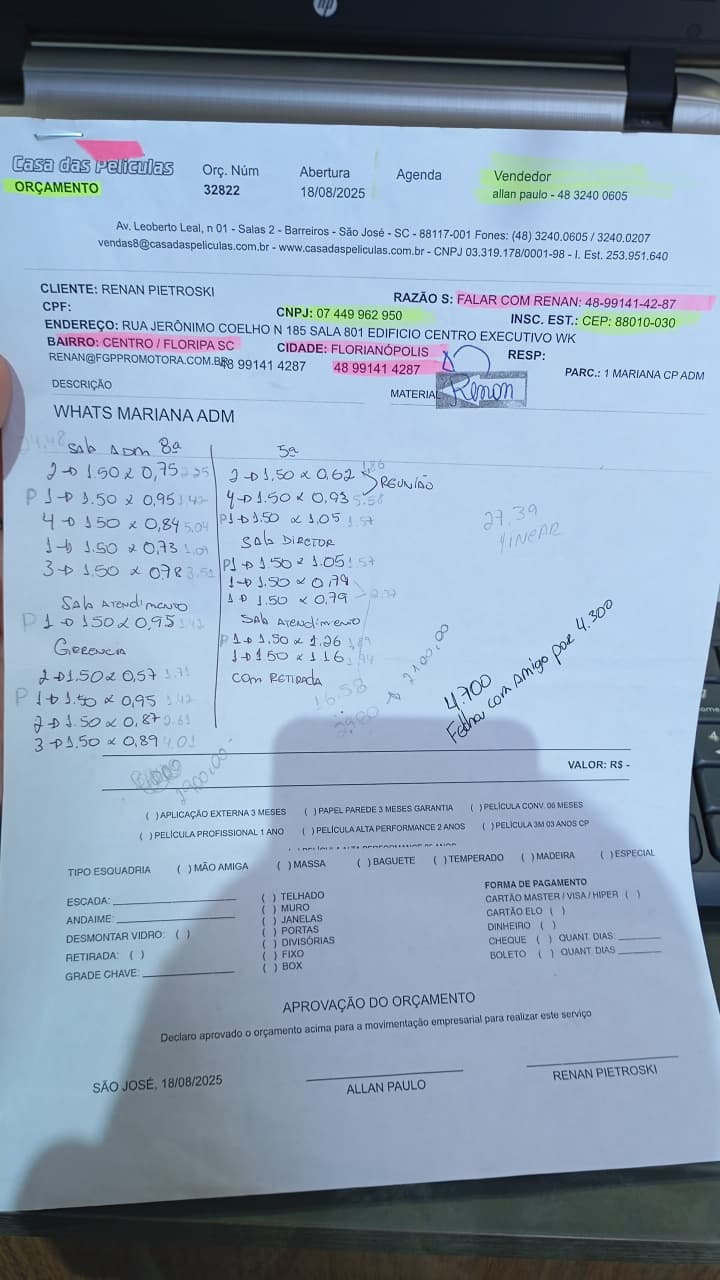 hp
Casa das Películas
ORÇAMENTO
Orç. Núm
32822
Abertura
18/08/2025
Agenda
Vendedor
allan paulo - 48 3240 0605
Av. Leoberto Leal, n 01 - Salas 2 - Barreiros - São José - SC - 88117-001 Fones: (48) 3240.0605 / 3240.0207
vendas8@casadaspeliculas.com.br - www.casadaspeliculas.com.br - CNPJ 03.319.178/0001-98 - I. Est. 253.951.640
CLIENTE: RENAN PIETROSKI
RAZÃO S: FALAR COM RENAN: 48-99141-42-87
CPF:
CNPJ: 07 449 962 950
INSC. EST.: CEP: 88010-030
ENDEREÇO: RUA JERÔNIMO COELHO N 185 SALA 801 EDIFICIO CENTRO EXECUTIVO WK
BAIRRO: CENTRO / FLORIPA SC
CIDADE: FLORIANÓPOLIS
RESP:
RENAN@FGPPROMOTORA.COM.BR
48 99141 4287
48 99141 4287
PARC.: 1 MARIANA CP ADM
DESCRIÇÃO
MATERIAL
Renan
WHATS MARIANA ADM
Sala ADM 8ª
2→1.50 x 0,75 2.25
P 1→1.50 x 0,95 1.42
4→1.50 x 0,84 5.04
1→1.50 x 0,73 1.09
3→1.50 x 0,78 3.51
Sala Atendimento
P 1→1.50 x 0,95 1.42
Gerencia
2→1.50 x 0,57 1.71
P 1→1.50 x 0,95 1.42
2→1.50 x 0,87 2.61
3→1.50 x 0,89 4.01
5ª
2→1.50 x 0,62 1.86
REUNIÃO
4→1.50 x 0,93 5.58
P1→1.50 x 1.05 1.57
Sala Director
P1→1.50 x 1.05 1.57
1→1.50 x 0,79
1→1.50 x 0,79 2.37
Sala Atendimento
P1→1.50 x 1.26 1.89
1→1.50 x 1.16
com RETIRADA
16.58
27.39
LINEAR
2100,00
2700,00
4.700
Fechar com Amigo por 4.300
VALOR: R$ -
( )APLICAÇÃO EXTERNA 3 MESES ( ) PAPEL PAREDE 3 MESES GARANTIA ( )PELÍCULA CONV. 06 MESES
( )PELÍCULA PROFISSIONAL 1 ANO ( )PELÍCULA ALTA PERFORMANCE 2 ANOS ( )PELÍCULA 3M 03 ANOS CP
TIPO ESQUADRIA ( ) MÃO AMIGA ( ) MASSA ( ) BAGUETE ( ) TEMPERADO ( ) MADEIRA ( ) ESPECIAL
ESCADA:
ANDAIME:
DESMONTAR VIDRO: ( )
RETIRADA: ( )
GRADE CHAVE:
( ) TELHADO
( ) MURO
( ) JANELAS
( ) PORTAS
( ) DIVISÓRIAS
( ) FIXO
( ) BOX
FORMA DE PAGAMENTO
CARTÃO MASTER / VISA / HIPER ( )
CARTÃO ELO ( )
DINHEIRO ( )
CHEQUE ( ) QUANT. DIAS:
BOLETO ( ) QUANT. DIAS
APROVAÇÃO DO ORÇAMENTO
Declaro aprovado o orçamento acima para a movimentação empresarial para realizar este serviço
SÃO JOSÉ, 18/08/2025
ALLAN PAULO
RENAN PIETROSKI